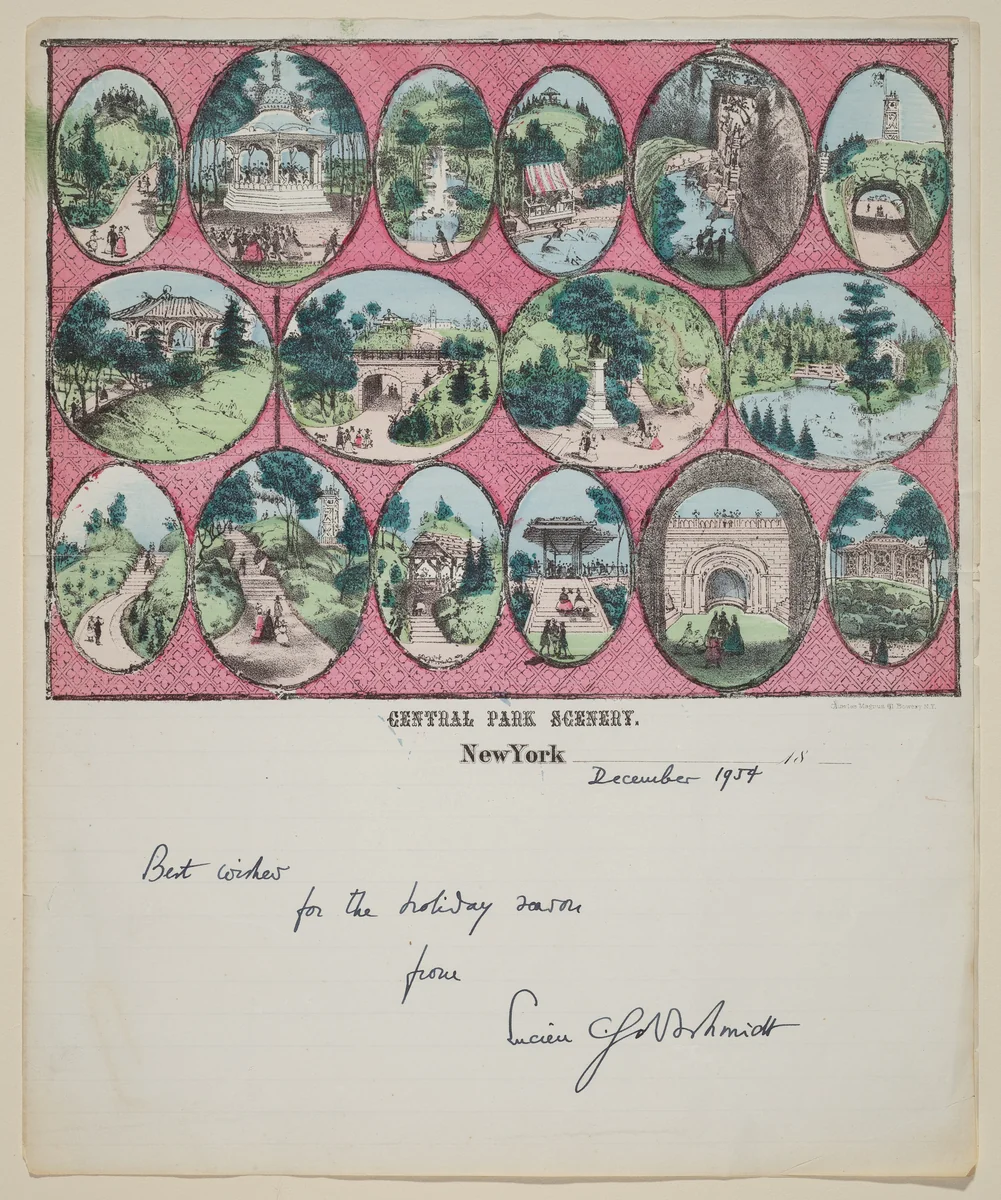 Charles Magnus N.Y.
CENTRAL PARK SCENERY.
New York 18
December 1954
Best wishes
for the holiday season
from
Lucien Goldschmidt